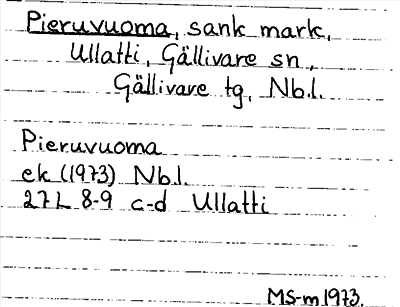 Pieruvuoma, sank mark,
Ullatti, Gällivare sn,
Gällivare tg, Nb.l.
Pieruvuoma
ek (1973) Nb.l.
27L 8-9 c-d Ullatti
MS-m 1973.